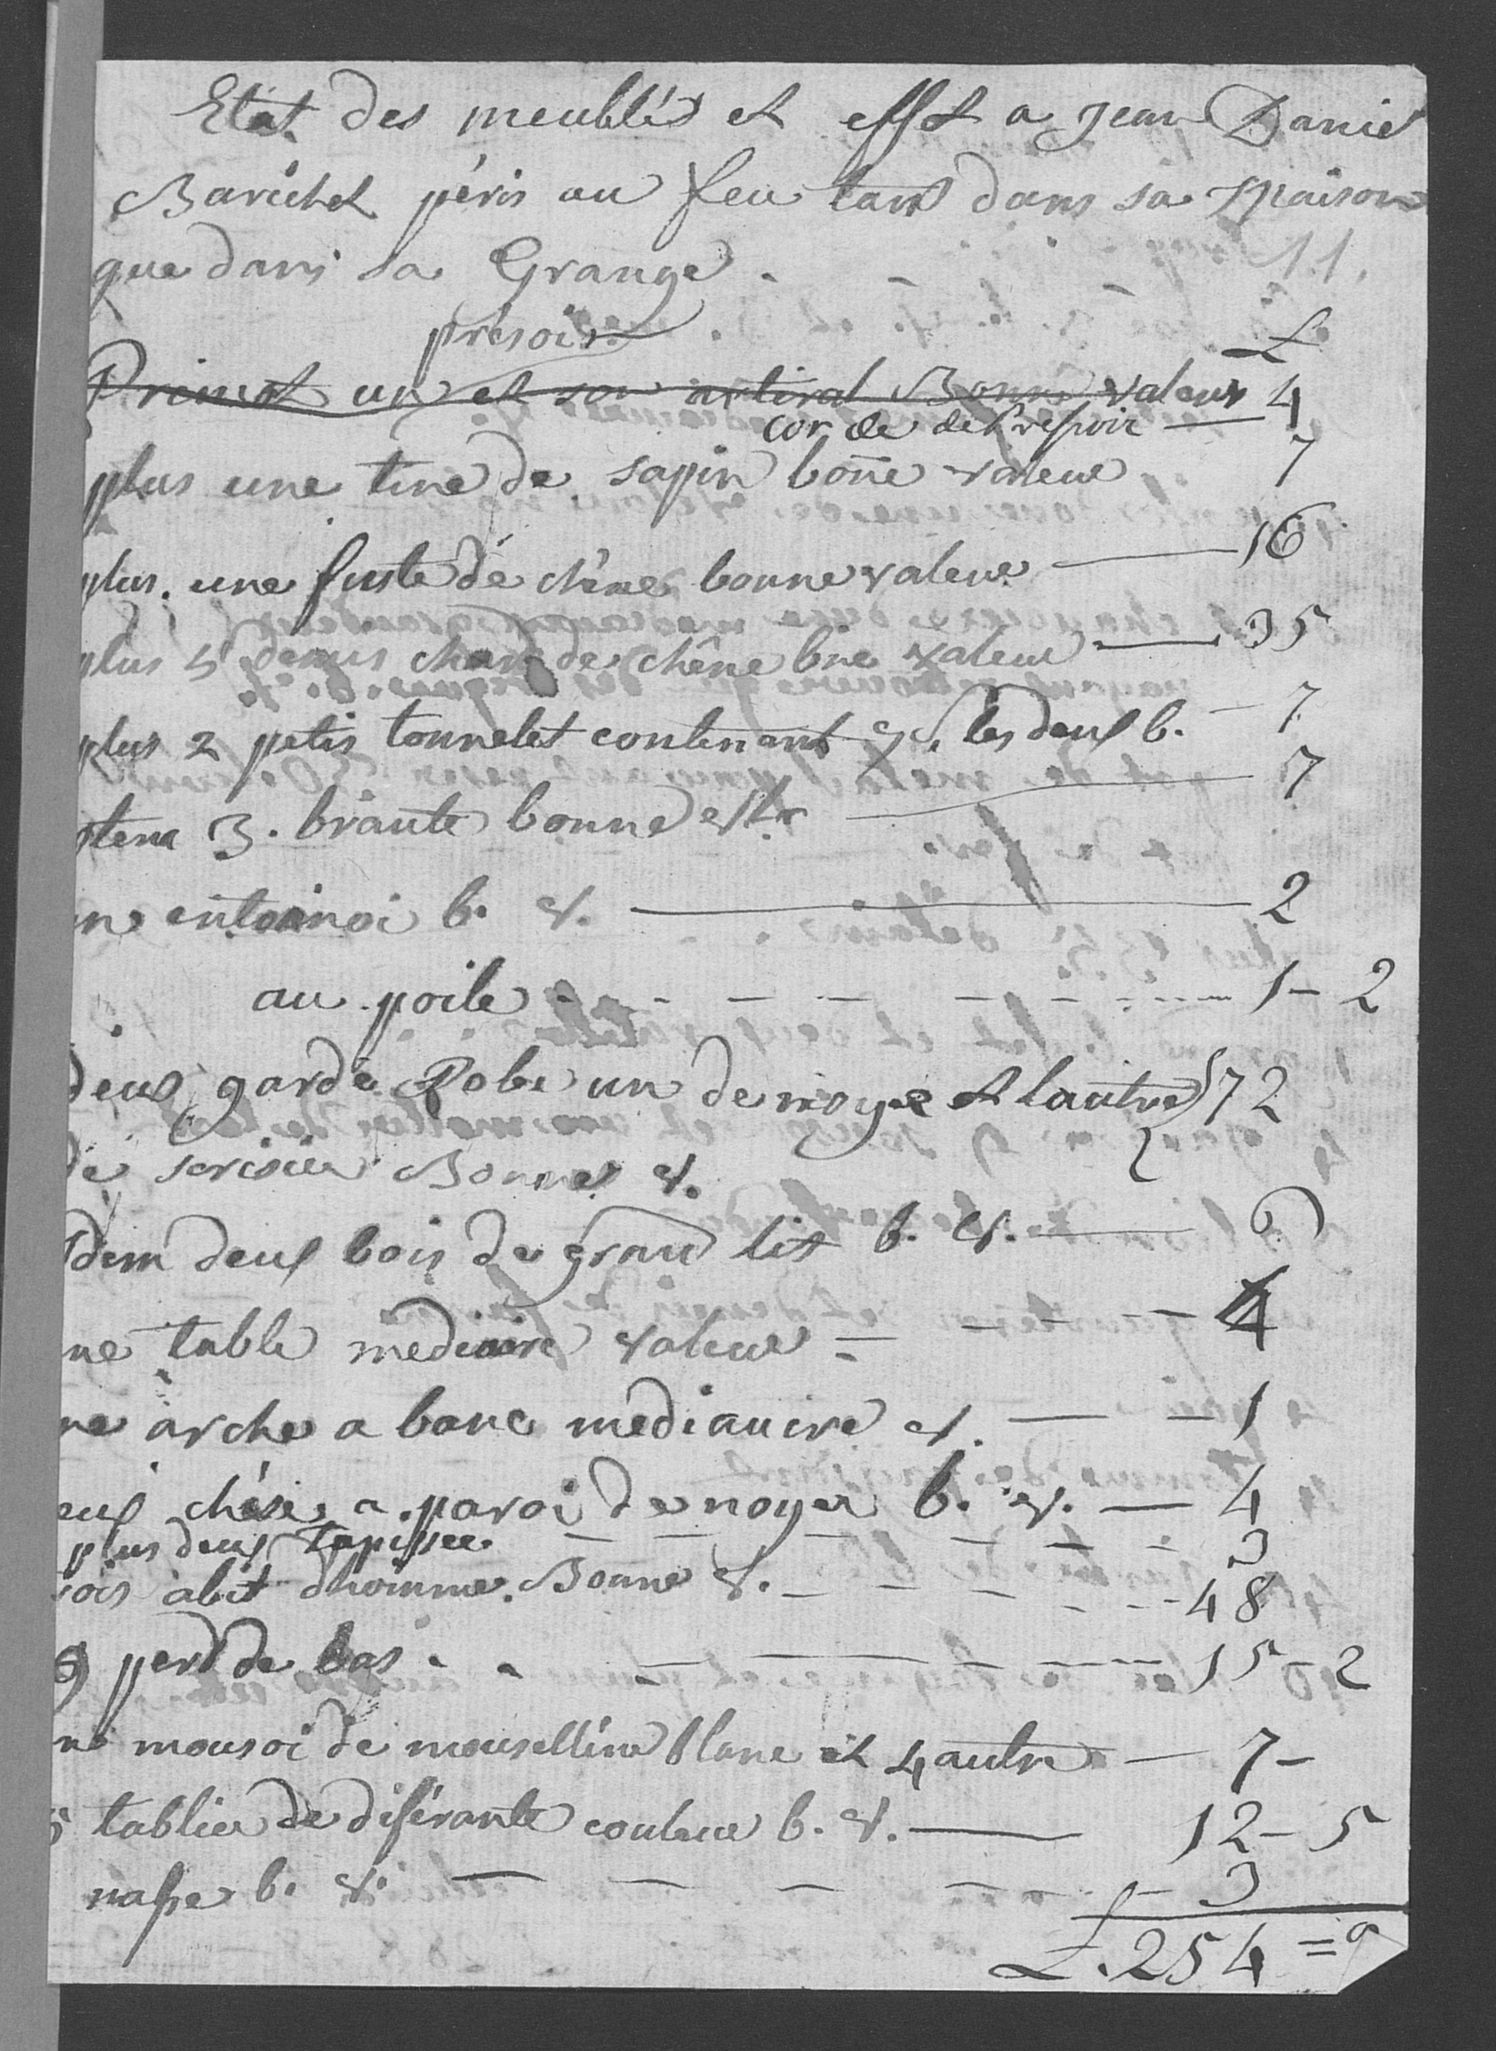 Etat des meublés et effet a Jean Daniel
Barichet péris au feu tant dans sa Maison
que dans sa Grange.
présoir
£
Primot un et son artiral Bonne valeur 4
corde de Presoir — 7
plus une tine de sapin bone valeur
plus. une fuste de chêne bonne valeur — 16
plus 5 demis char de chêne bne valeur — 35
plus 2 petis tonnelet contenant les deux b. — 7
item 3. brante bonne vlr — 7
ne entonnoi b. v. — 2
au poile - - - - - - 1 - 2
deux garde Robe un de noyer et lautre } 72
de serisier Bonne v.
Idem deux bois de grand lit b. v. — 6
ne table mediocre valeur = - - - - 4
ne arche a banc mediaucre v. — - 1
eux chése a paroi de noyer b. v. — 4
plus deux tapisser. - - - - - - 3
rois abit dhomme. Bonne v. - - - - - 48
9 pere de bas - - - - - - 15 - 2
ne mousoi de mouselline blanc et 4 autre — 7 -
5 tablier de diférante couleur b. v. — 12 - 5
nape b. v. — - - - - 3
£. 254 = 9